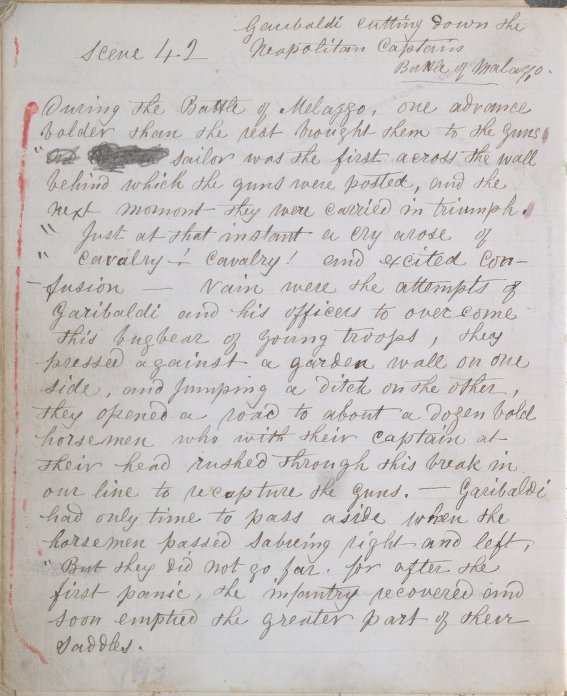 Garibaldi cutting down the
Scene 42 Neopolitan Captain
Battle of Malazzo.
During the Battle of Melazzo, one advance
bolder than the rest brought them to the guns
" sailor was the first across the wall
behind which the guns were posted, and the
next moment they were carried in triumph.
" Just at that instant a cry arose of
" Cavalry! Cavalry! and excited con-
fusion — Vain were the attempts of
Garibaldi and his officers to over come
this bugbear of young troops, they
pressed against a garden wall on one
side, and jumping a ditch on the other,
they opened a road to about a dozen bold
horsemen who with their captain at
their head rushed through this break in
our line to recapture the guns. — Garibaldi
had only time to pass aside when the
horsemen passed sabreing right and left,
" But they did not go far. for after the
first panic, the infantry recovered and
soon emptied the greater part of their
saddles.